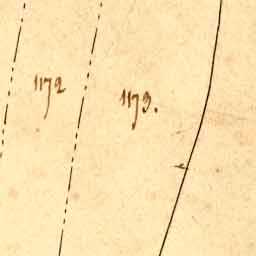 1172
1173.